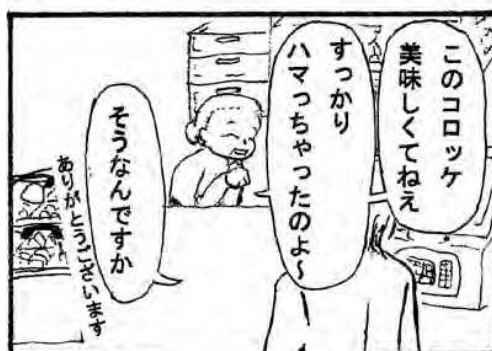 このコロッケ
美味しくてねえ
すっかり
ハマっちゃったのよ～
そうなんですか
ありがとうございます